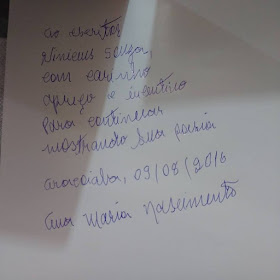 ao escritor
Vinicius Souza,
com carinho
apreço e incentivo
Para continuar
mostrando sua poesia
Aracoiaba, 09/08/2016
Ana Maria Nascimento